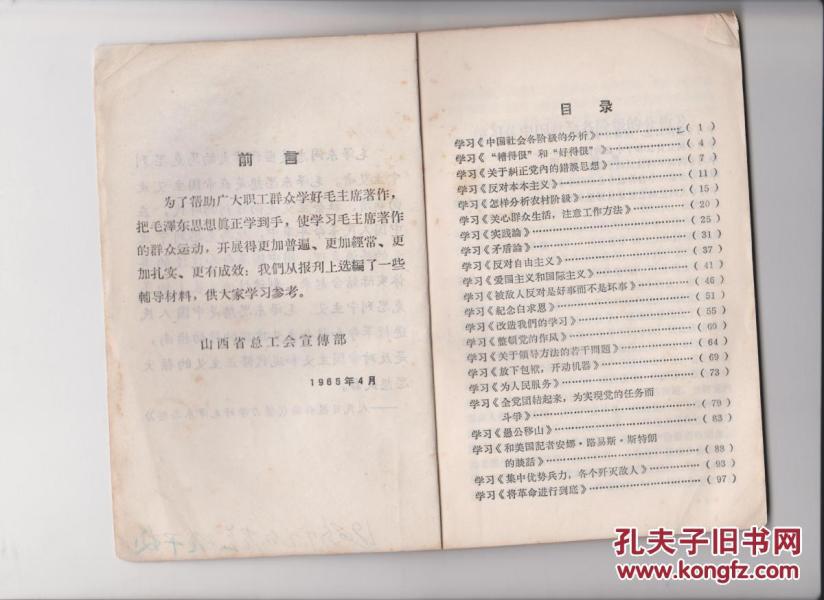 前言
为了帮助广大职工群众学好毛主席著作，
把毛澤东思想眞正学到手，使学习毛主席著作
的群众运动，开展得更加普遍、更加經常、更
加扎实、更有成效；我們从报刊上选編了一些
輔导材料，供大家学习参考。
山西省总工会宣傳部
1965年4月
目录
学习《中国社会各阶級的分析》……………（1）
学习《“糟得很”和“好得很”》……………（4）
学习《关于糾正党內的錯誤思想》……………（7）
学习《反对本本主义》……………（11）
学习《怎样分析农村阶級》……………（15）
学习《关心群众生活，注意工作方法》……………（20）
学习《实践論》……………（25）
学习《矛盾論》……………（31）
学习《反对自由主义》……………（37）
学习《爱国主义和国际主义》……………（41）
学习《被敌人反对是好事而不是坏事》……………（46）
学习《紀念白求恩》……………（51）
学习《改造我們的学习》……………（55）
学习《整頓党的作风》……………（60）
学习《关于領导方法的若干問題》……………（64）
学习《放下包袱，开动机器》……………（69）
学习《为人民服务》……………（73）
学习《全党团結起来，为实现党的任务而
斗爭》……………（79）
学习《愚公移山》……………（83）
学习《和美国記者安娜·路易斯·斯特朗
的談話》……………（88）
学习《集中优势兵力，各个歼灭敌人》……………（93）
学习《将革命进行到底》……………（97）
孔夫子旧书网
www.kongfz.com